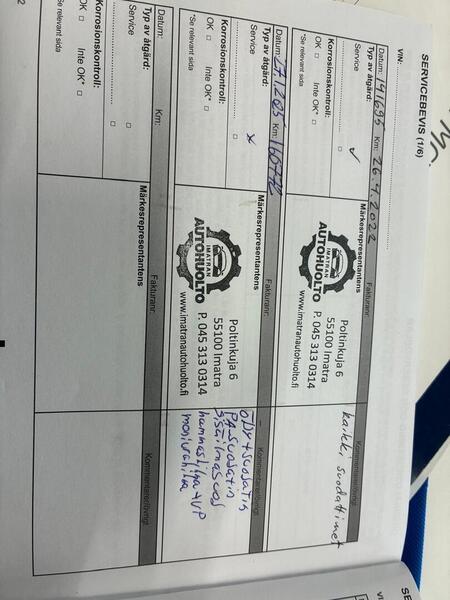 SERVICEBEVIS (1/6)
VIN:
Datum: 141695 Km: 26.4.2022
Typ av åtgärd:
Service ✓
Korrosionskontroll:
OK □ Inte OK* □
*Se relevant sida
Märkesrepresentantens
Fakturanr:
IMATRAN
AUTOHUOLTO
Poltinkuja 6
55100 Imatra
P. 045 313 0314
www.imatranautohuolto.fi
Kommentarer/övrigt:
kaikki suodattimet
Datum: Km: 165772
Typ av åtgärd:
Service x
Korrosionskontroll:
OK □ Inte OK* □
*Se relevant sida
Märkesrepresentantens
Fakturanr:
IMATRAN
AUTOHUOLTO
Poltinkuja 6
55100 Imatra
P. 045 313 0314
www.imatranautohuolto.fi
Kommentarer/övrigt:
ÖLJY+suodatin
PA-suodatin
sisäilmasuod
hammashihna+VP
moniurahihna
Datum: Km:
Typ av åtgärd:
Service □
Korrosionskontroll:
OK □ Inte OK* □
*Se relevant sida
Märkesrepresentantens
Fakturanr:
Kommentarer/övrigt: